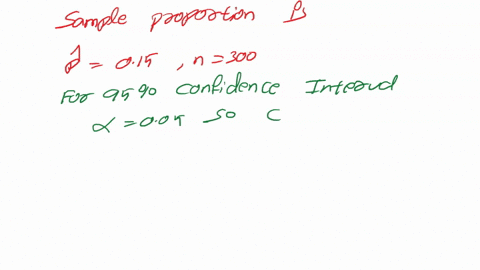 Sample proportion Ps
p̂ = 0.15 , n = 300
For 95% confidence Interval
α = 0.05 so C